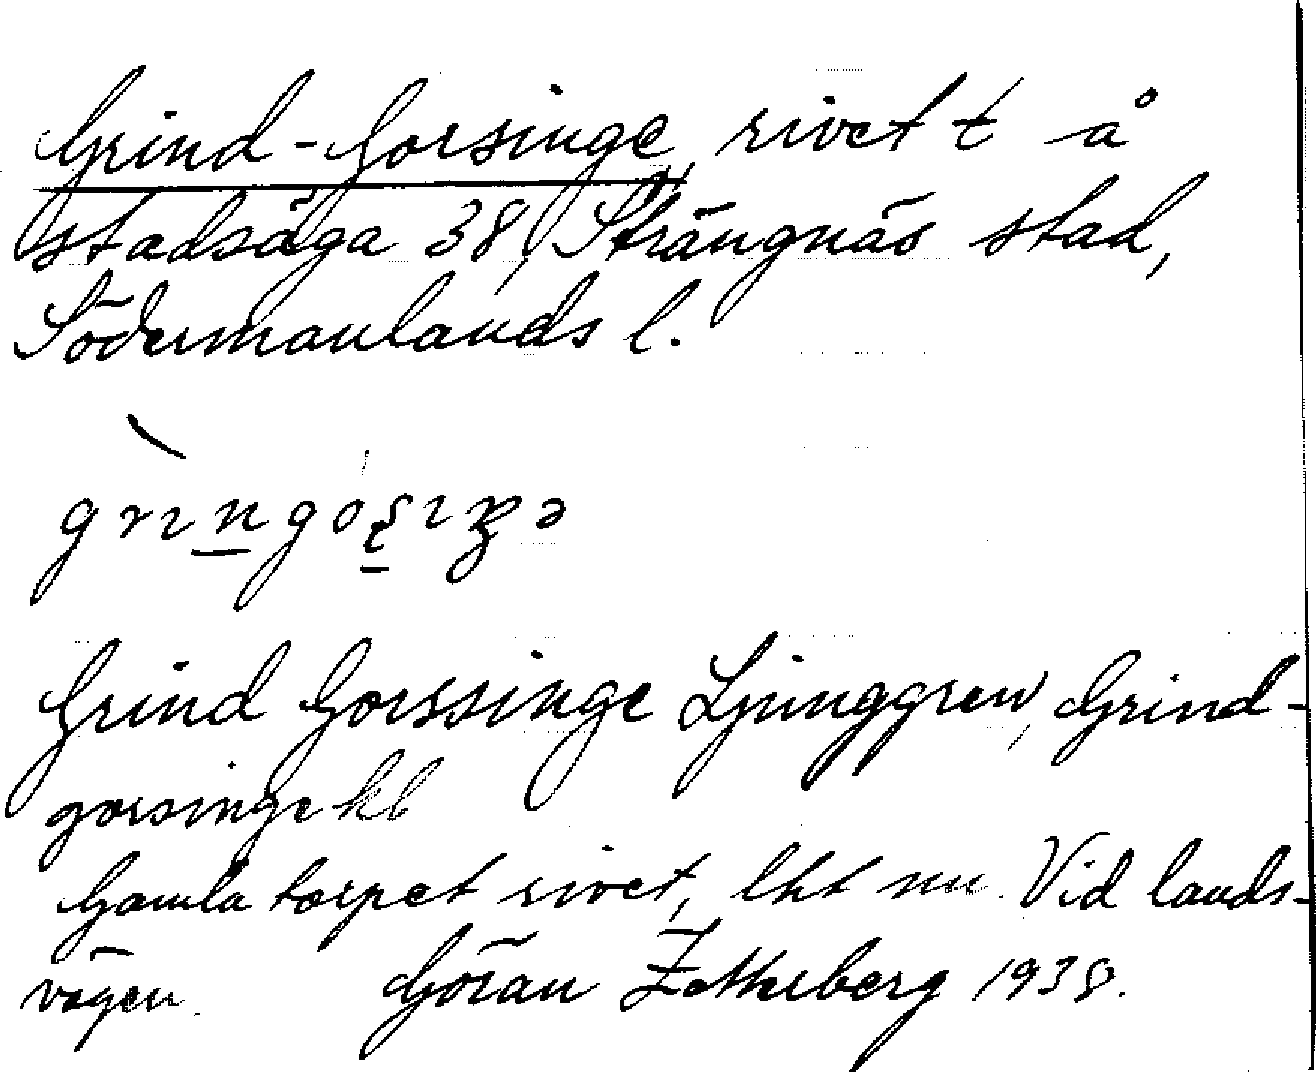 Grind-Gorsinge, rivet t å
stadsäga 38, Strängnäs stad,
Södermanlands l.
Grind Gorssinge Ljunggren, Grind-
gorsinge kb
Gamla torpet rivet, lht nu. Vid lands-
vägen. Göran Zetterberg 1938.